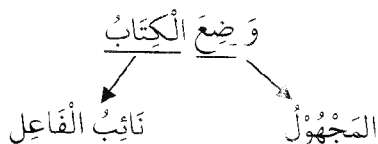 وَضِعَ الْكِتَابُ
المَجْهُوْلُ نَائِبُ الْفَاعِلِ